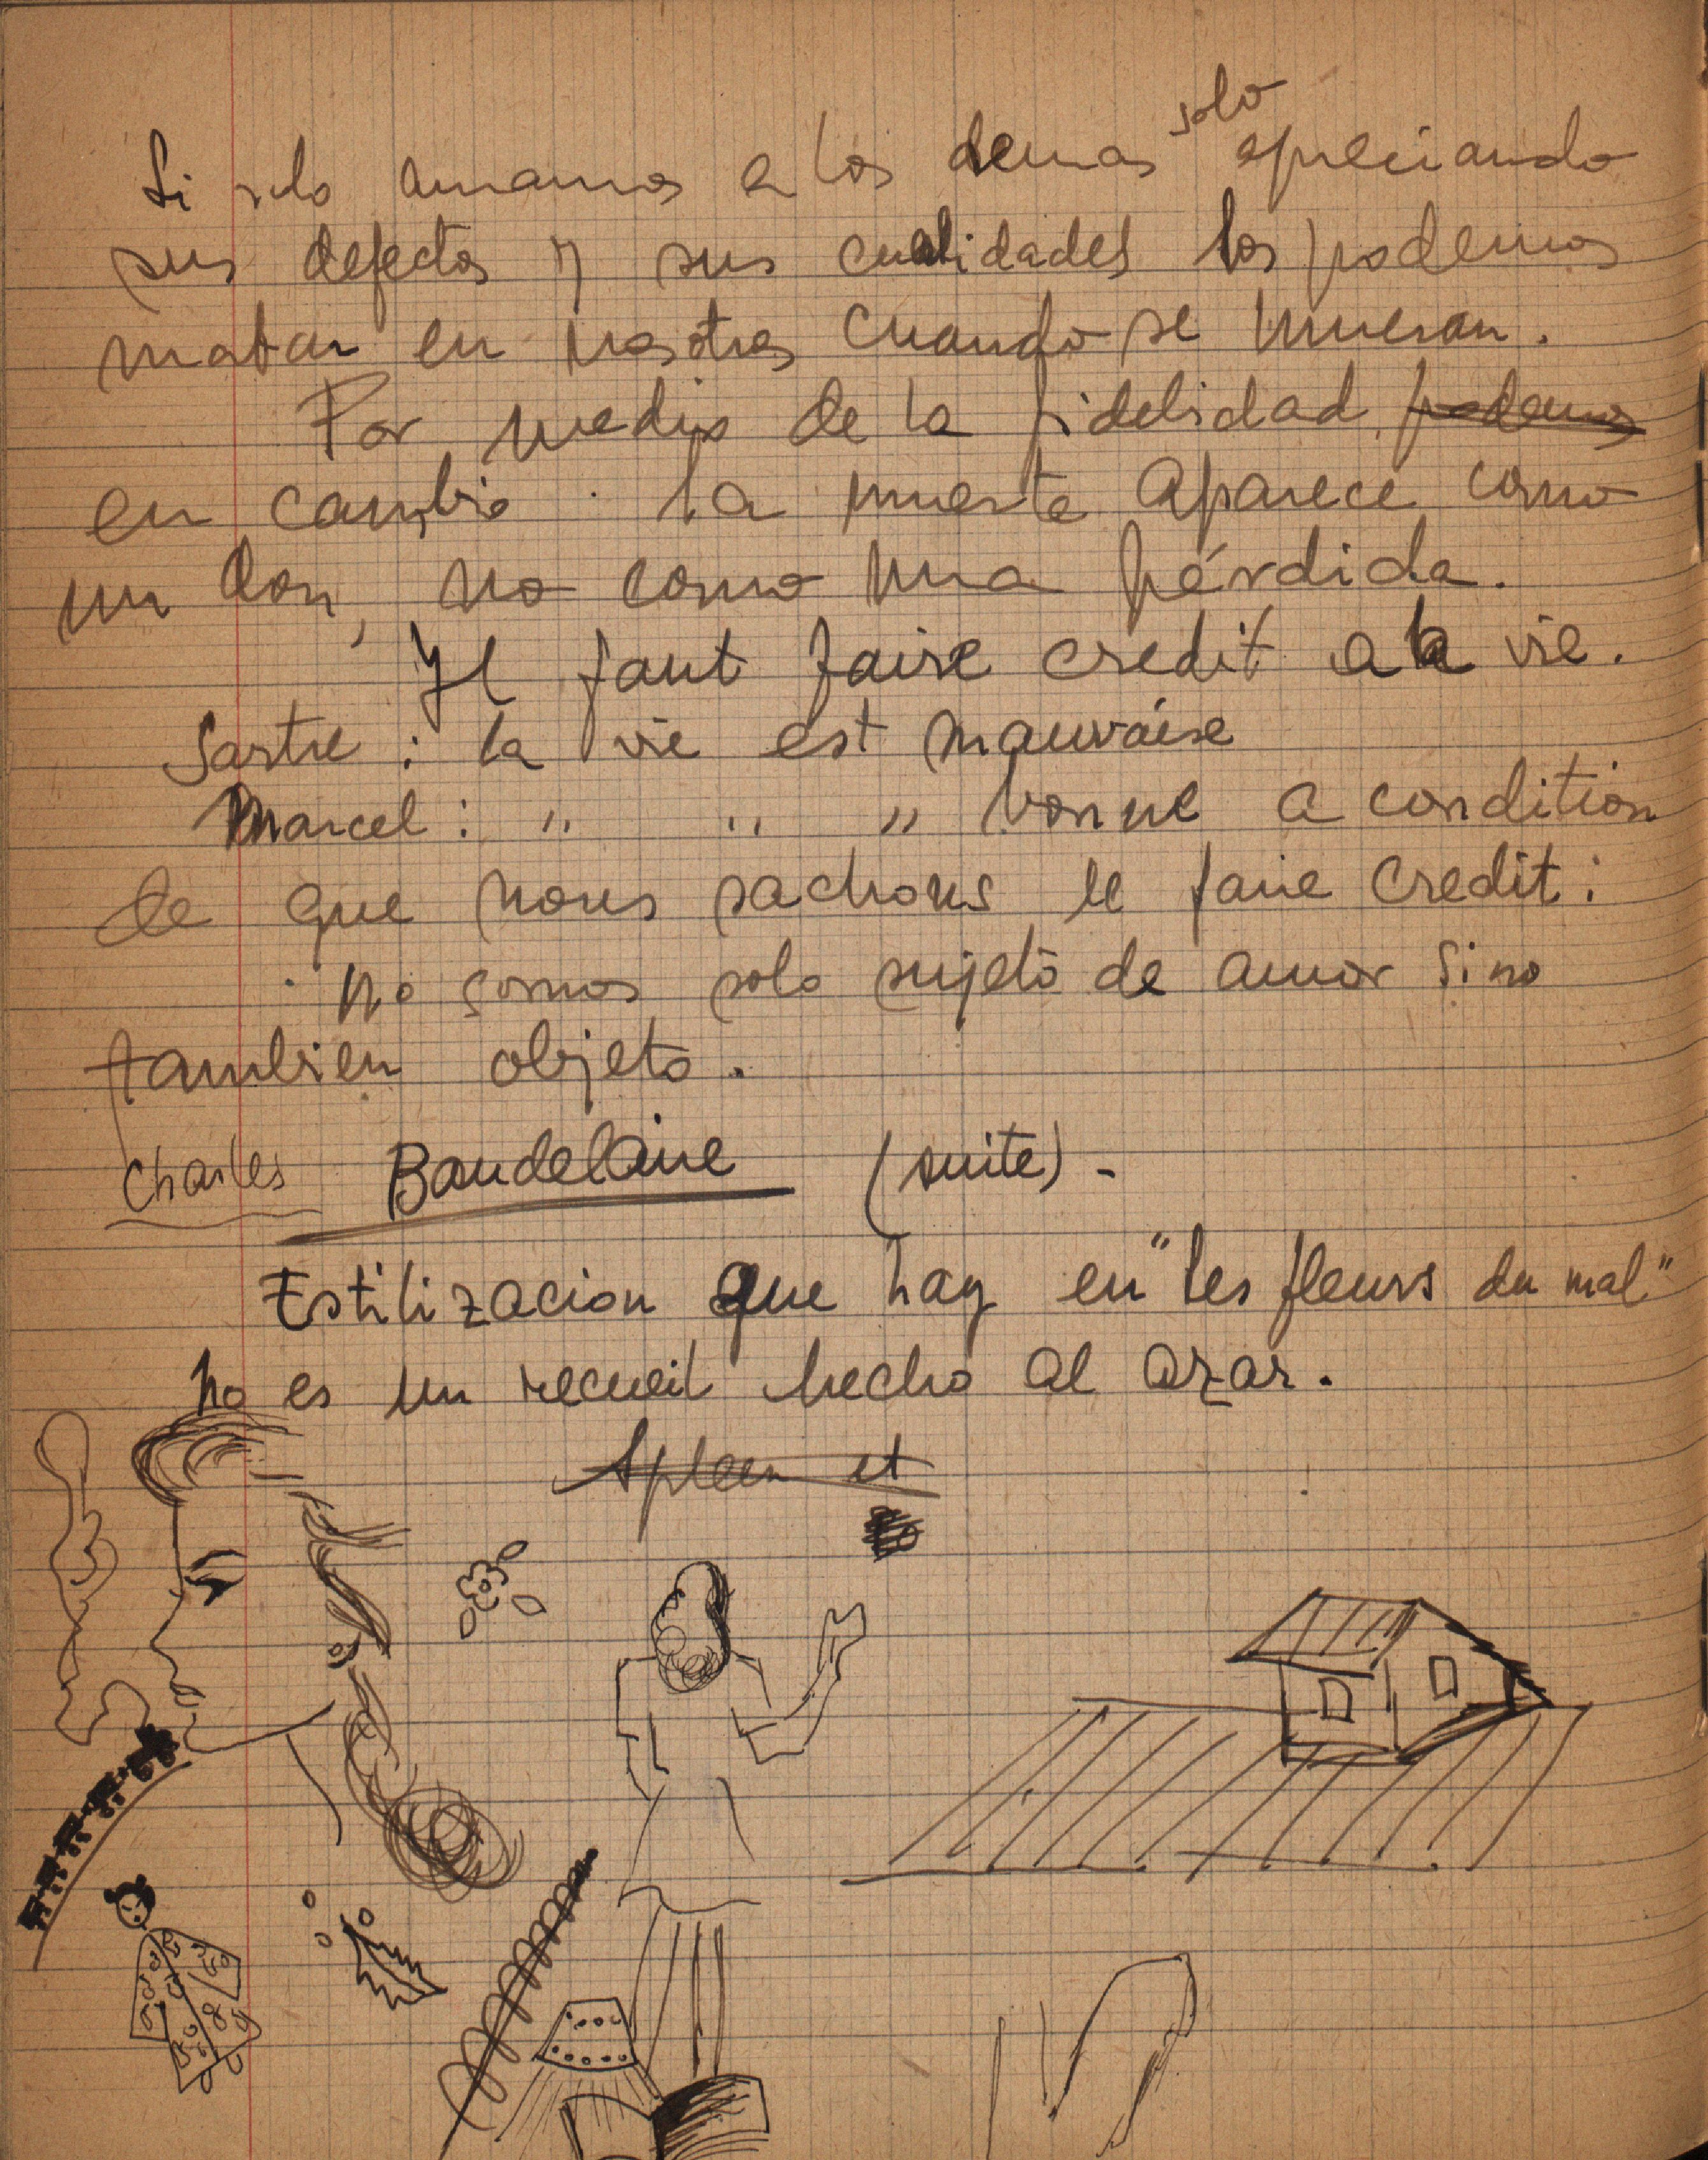 Si solo amamos a los demas solo apreciando
sus defectos y sus cualidades los podemos
matar en nosotros cuando se mueran.
Por medio de la fidelidad, podemos
en cambio. la muerte aparece como
un don, no como una pérdida.
Il faut faire credit a la vie.
Sartre : la vie est mauvaise
Marcel : " " " bonne a condition
de que nous sachons le faire credit :
no somos solo sujeto de amor sino
tambien objeto.
Charles Baudelaire (suite) -
Estilizacion que hay en "les fleurs du mal"
no es un recueil hecho al azar.
Spleen et